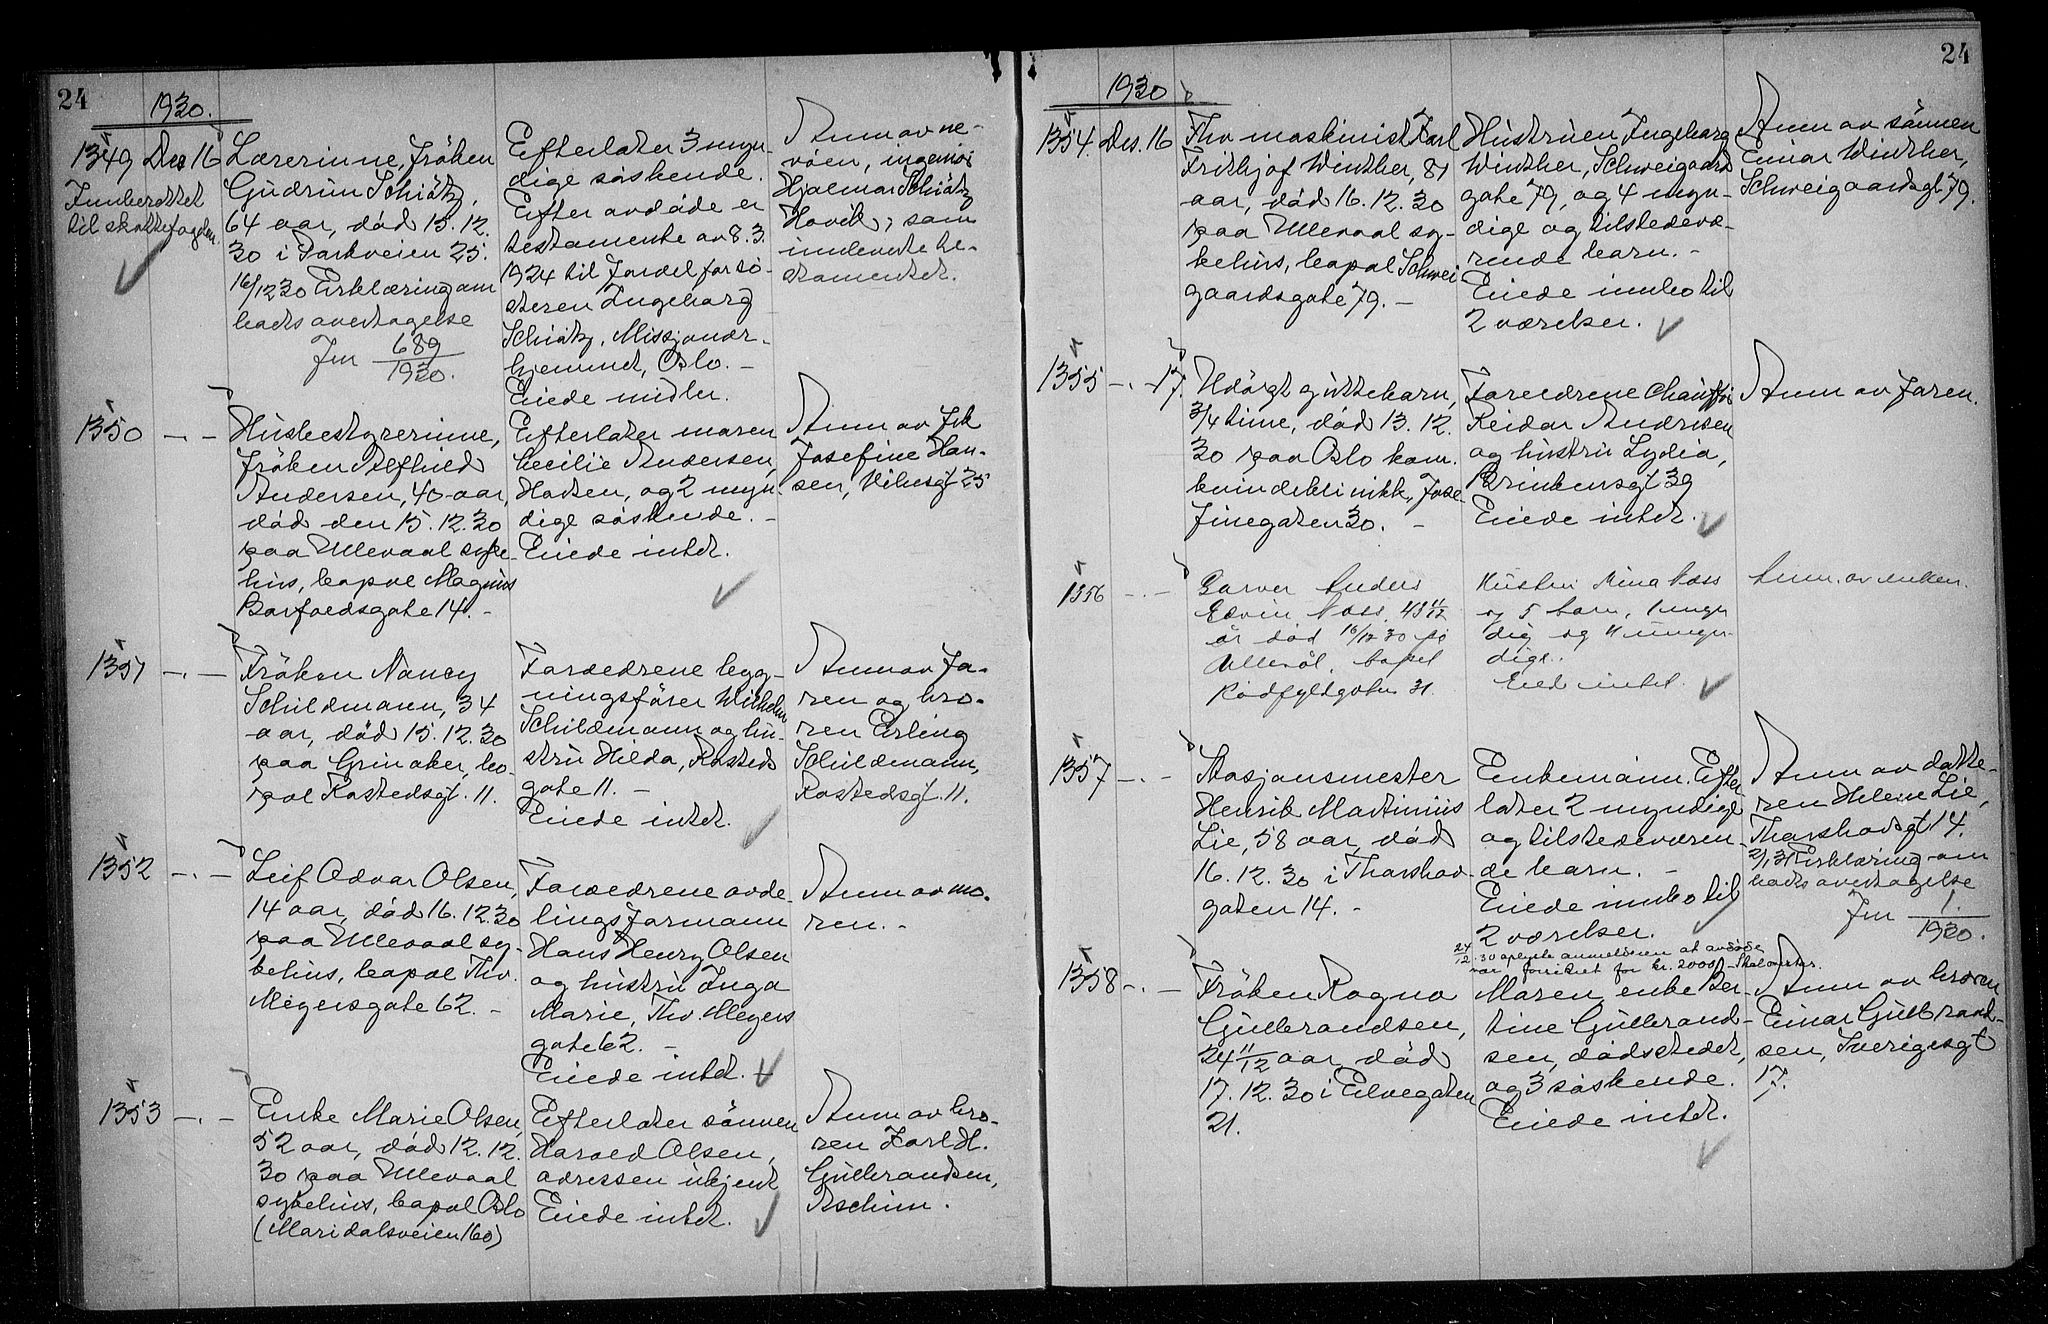 24
1930.
1349 Des 16
Innberettet
til skattefogden.
Lærerinne, fröken
Gudrun Schiøtz,
64 aar, död 15.12.
30 i Parkveien 25.
16/12 30 Erklæring om
boets overtagelse
Jnr 689
1930.
Efterlater 3 myn-
dige söskende.
Efter avdöde er
testamente av 8.3.
1924 til fordel for sö-
steren Ingeborg
Schiøtz, Missjonær-
hjemmet, Oslo. -
Eiede midler.
Anm av ne-
vöen, ingeniör
Hjalmar Schiøtz
Hövik, som
innleverte te-
stamentet.
1350 -.-
Husbestyrerinne,
fröken Alfhild
Andersen, 40 aar,
död den 15.12.30
paa Ullevaal syke-
hus, bopæl Magnus
Barfoedsgate 14. -
Efterlater moren
Cecilie Andersen,
og 2 myn-
dige söskende. -
Eiede intet.
Anm av frk
Josefine Han-
sen, Vibesgt 25
1351 -.-
Fröken Nancy
Schildmann, 34
aar, död 15.12.30
paa Grinaker, bo-
pæl Rostedsgt. 11.
Foreldrene bygg-
ningsförer Wilhelm
Schildmann og hu-
stru Hilda, Rosteds
gate 11. -
Eiede intet.
Anm av fa-
ren og bro-
ren Erling
Schildmann,
Rostedsgt. 11.
1352 -.-
Leif Odvar Olsen,
14 aar, död 16.12.30
paa Ullevaal sy-
kehus, bopæl Thv.
Meyersgate 62. -
Foreldrene avde-
lingsformann
Hans Henry Olsen
og hustru Inga
Marie, Thv. Meyers
gate 62. -
Eiede intet.
Anm av mo-
ren. -
1353 -.-
Enke Marie Olsen,
52 aar, död 12.12.
30 paa Ullevaal
sykehus, bopæl Oslo
(Maridalsveien 160)
Efterlater sönnen
Harald Olsen,
adressen ukjent
Eiede intet.
Anm av bro-
ren Karl H.
Gulbrandsen,
Askim.
24
1930
1354. Des. 16
Fhv maskinist Karl
Frithjof Winther, 81
aar, död 16.12.30
paa Ullevaal sy-
kehus, bopæl Schwei
gaardsgate 79. -
Hustruen Ingeborg
Winther, Schweigaards
gate 79, og 4 myn-
dige og tilstedevæ-
rende barn. -
Eiede innbo til
2 værelser.
Anm av sönnen
Einar Winther,
Schweigaardsgt. 79.
1355 -.- 17.
Udöpt guttebarn,
3/4 time, död 13.12.
30 paa Oslo kom.
kvindeklinikk, Jose-
finegaten 30. -
Foreldrene chaufför
Reidar Andresen
og hustru Lydia,
Brinkensgt 39
Eiede intet.
Anm av faren.
1356 -.-
Garver Anders
Edvin Næss, 43 11/12
år död 16/12 30 på
Ullevål, bopel
Rödfyldgaten 31.
Hustru Mina Næss
og 5 barn, 1 myn
dig og 4 umyn-
dige.
Eied intet.
Anm. av enken.
1357 -.-
Stasjonsmester
Henrik Martinius
Lie, 58 aar, död
16.12.30 i Thorshov-
gaten 14. -
Enkemann. Efter
later 2 myndige
og tilstedeværen-
de barn. -
Eiede innbo til
2 værelser.
Anm av datte-
ren Helene Lie,
Thorshovsgt 14.
2/1 31 Erklæring om
boets overtagelse
Jnr 1.
1930.
1358 -.-
Fröken Ragna
Gulbrandsen,
24 11/12 aar, död
17.12.30 i Elvegaten
21.
24/12.30 oplyste anmelderen at avdöde
var forsikret for kr. 2000,-
Moren, enke Ber-
tine Gulbrand-
sen, dödstedet,
og 3 söskende.
Eiede intet.
Anm av broren
Einar Gulbrand-
sen, Sverigesgt
17.